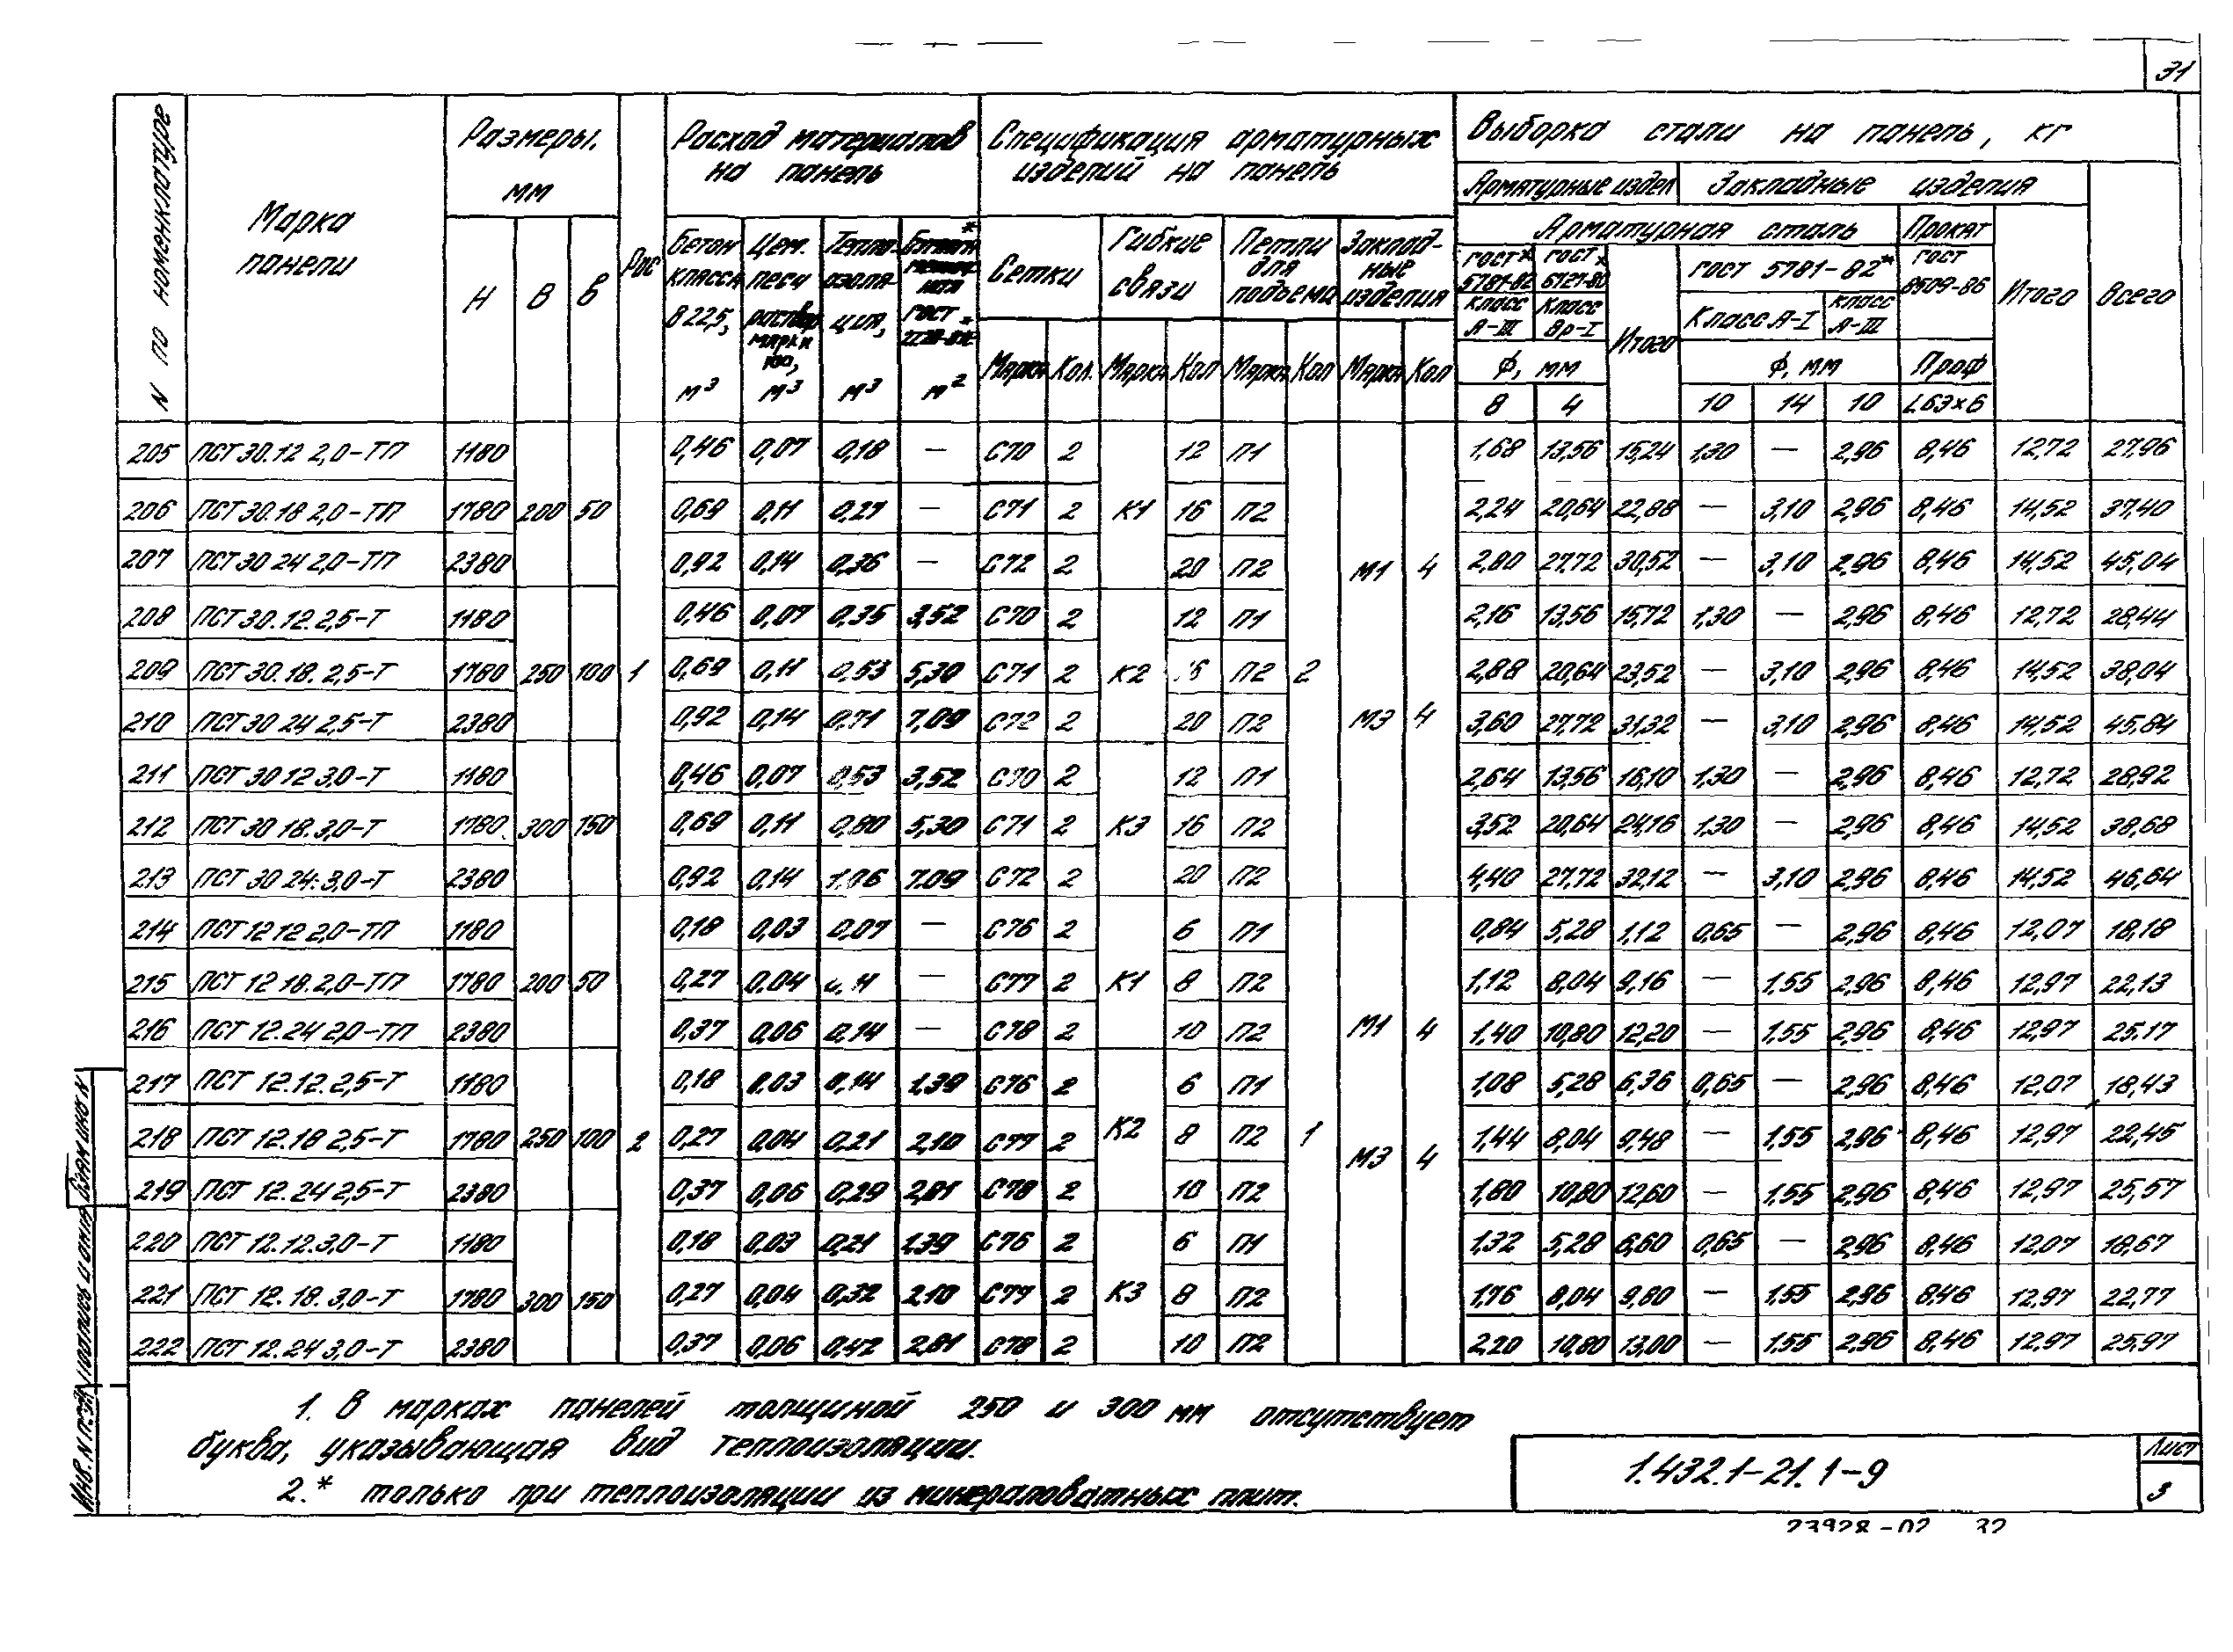 31
N по номенклатуре
Марка панели
Размеры, мм
Н В в
Рис
Расход материалов на панель
Бетон класса В 22,5, м³
Цем. песч раствор марки 100, м³
Теплоизоляция, м³
м²
Спецификация арматурных изделий на панель
Сетки
Гибкие связи
Петли для подъема
Закладные изделия
Марка Кол. Марка Кол Марка Кол Марка Кол
Выборка стали на панель, кг
Арматурные издел Закладные изделия
Арматурная сталь Прокат
ГОСТ* 5781-82 класс А-III
ГОСТ* 6727-80 класс Вр-I
Итого
ГОСТ 5781-82*
Класс А-I класс А-III
ГОСТ 8509-86
Итого
Всего
Ф, мм Ф, мм Проф
8 4 10 14 10 L63×6
205 ПСТ 30.12 2,0-ТП 1180 0,46 0,07 0,18 — С70 2 12 П1 1,68 13,56 15,24 1,30 — 2,96 8,46 12,72 27,96
206 ПСТ 30.18 2,0-ТП 1780 200 50 0,69 0,11 0,27 — С71 2 К1 16 П2 2,24 20,64 22,88 — 3,10 2,96 8,46 14,52 37,40
207 ПСТ 30 24 2,0-ТП 2380 0,92 0,14 0,36 — С72 2 20 П2 М1 4 2,80 27,72 30,52 — 3,10 2,96 8,46 14,52 45,04
208 ПСТ 30.12.2,5-Т 1180 0,46 0,07 0,35 3,52 С70 2 12 П1 2,16 13,56 15,72 1,30 — 2,96 8,46 12,72 28,44
209 ПСТ 30.18.2,5-Т 1780 250 100 1 0,69 0,11 0,53 5,30 С71 2 К2 16 П2 2 2,88 20,64 23,52 — 3,10 2,96 8,46 14,52 38,04
210 ПСТ 30 24 2,5-Т 2380 0,92 0,14 0,71 7,09 С72 2 20 П2 М3 4 3,60 27,72 31,32 — 3,10 2,96 8,46 14,52 45,84
211 ПСТ 30 12 3,0-Т 1180 0,46 0,07 0,53 3,52 С70 2 12 П1 2,64 13,56 16,10 1,30 — 2,96 8,46 12,72 28,92
212 ПСТ 30 18.3,0-Т 1780 300 150 0,69 0,11 0,80 5,30 С71 2 К3 16 П2 3,52 20,64 24,16 1,30 — 2,96 8,46 14,52 38,68
213 ПСТ 30 24.3,0-Т 2380 0,92 0,14 1,06 7,09 С72 2 20 П2 4,40 27,72 32,12 — 3,10 2,96 8,46 14,52 46,64
214 ПСТ 12 12 2,0-ТП 1180 0,18 0,03 0,07 — С76 2 6 П1 0,84 5,28 1,12 0,65 — 2,96 8,46 12,07 18,18
215 ПСТ 12 18.2,0-ТП 1780 200 50 0,27 0,04 0,11 — С77 2 К1 8 П2 1,12 8,04 9,16 — 1,55 2,96 8,46 12,97 22,13
216 ПСТ 12.24 2,0-ТП 2380 0,37 0,06 0,14 — С78 2 10 П2 М1 4 1,40 10,80 12,20 — 1,55 2,96 8,46 12,97 25,17
217 ПСТ 12.12.2,5-Т 1180 0,18 0,03 0,14 1,39 С76 2 6 П1 1,08 5,28 6,36 0,65 — 2,96 8,46 12,07 18,43
218 ПСТ 12.18 2,5-Т 1780 250 100 2 0,27 0,04 0,21 2,10 С77 2 К2 8 П2 1 М3 4 1,44 8,04 9,48 — 1,55 2,96 8,46 12,97 22,45
219 ПСТ 12.24 2,5-Т 2380 0,37 0,06 0,29 2,81 С78 2 10 П2 1,80 10,80 12,60 — 1,55 2,96 8,46 12,97 25,57
220 ПСТ 12.12.3,0-Т 1180 0,18 0,03 0,21 1,39 С76 2 6 П1 1,32 5,28 6,60 0,65 — 2,96 8,46 12,07 18,67
221 ПСТ 12.18.3,0-Т 1780 300 150 0,27 0,04 0,32 2,10 С77 2 К3 8 П2 1,76 8,04 9,80 — 1,55 2,96 8,46 12,97 22,77
222 ПСТ 12.24 3,0-Т 2380 0,37 0,06 0,42 2,81 С78 2 10 П2 2,20 10,80 13,00 — 1,55 2,96 8,46 12,97 25,97
1. В марках панелей толщиной 250 и 300 мм отсутствует
буква, указывающая вид теплоизоляции.
2.* только при теплоизоляции из минераловатных плит.
1.432.1-21.1-9
Лист
3
23928-02 32
Инв. N подл. Подпись и дата Взам инв N